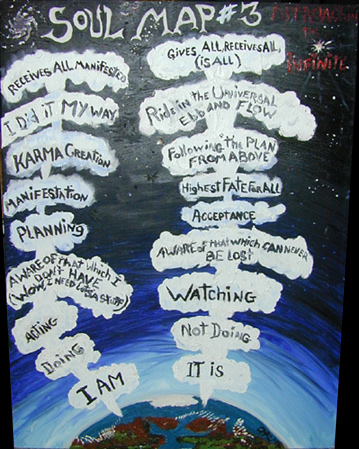 SOUL MAP #3
RECEIVES ALL MANIFESTED
I DiD iT MY WAY
KARMA CREATION
MANIFESTATION
PLANNiNg
AWARE OF THAT WHICH I
DON'T HAVE
ACTiNg
DOiNg
I AM
GIVES ALL, RECEIVES ALL,
(iS ALL)
RidE iN THE UNiVERSAL
Ebb AND FLOW
FOLLOWiNg THE PLAN
FROM ABOVE
HigHEST FATE FOR ALL
ACCEPTANCE
AWARE OF THAT WHICH CAN NEVER
BE LOST
WATCHiNg
NOT DOiNg
IT iS
INFINITE